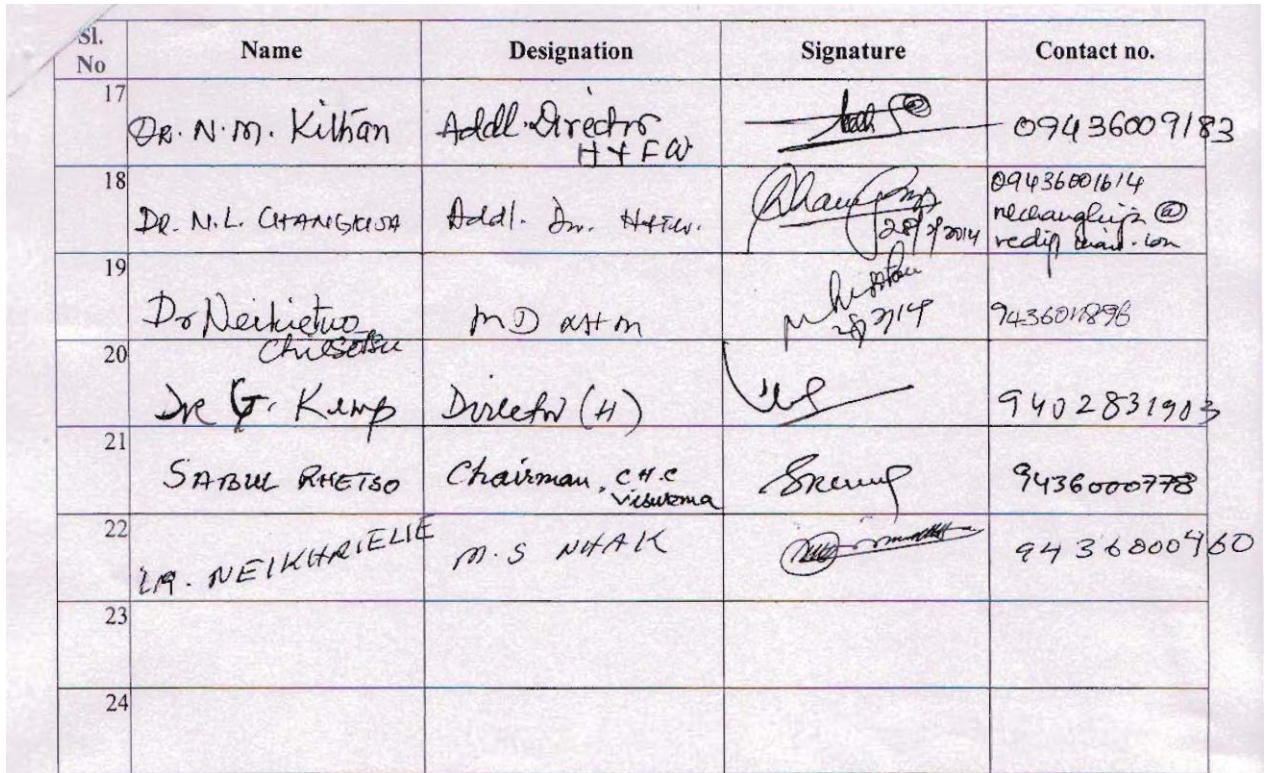 Sl. No Name Designation Signature Contact no.
17 DR. N. M. Kithan Addl. Director H & FW 09436009183
18 DR. N.L. CHANGKIJA Addl. Dir. H&FW. 28/2/2014 09436001614
@
19 Dr Neikietuo Chiesotsu MD 28/2/14 9436011896
20 Dr G. Kemp Director (H) 9402831903
21 SABUL RHETSO Chairman, C H.C Viswema 9436000778
22 DR. NEIKHRIELIE M.S NHAK 9436000960
23
24